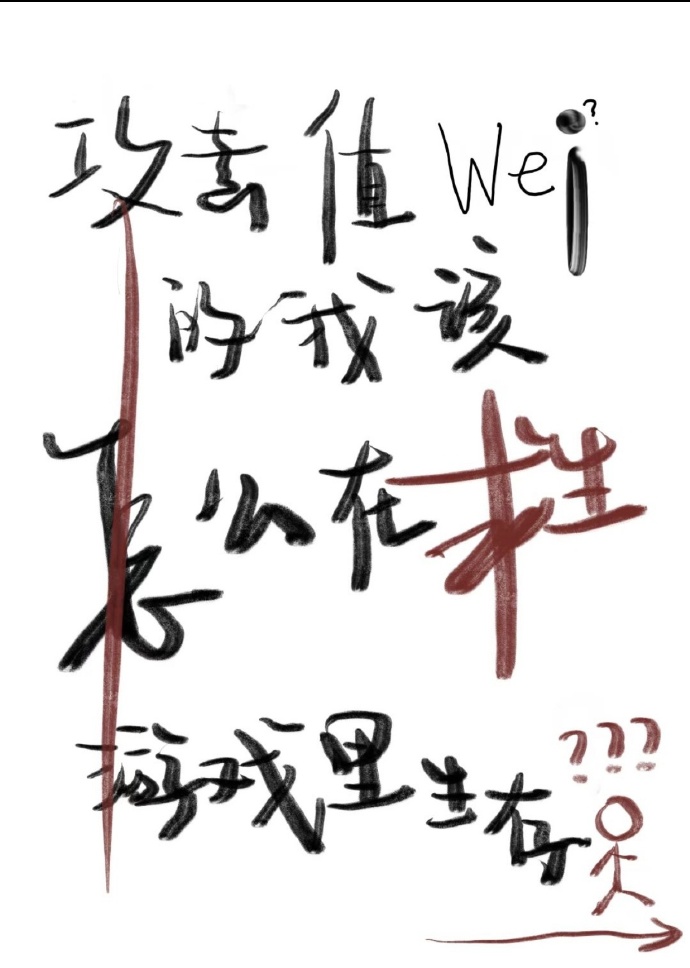 攻击值Wei?
的我该
怎么在性
游戏里生存
???